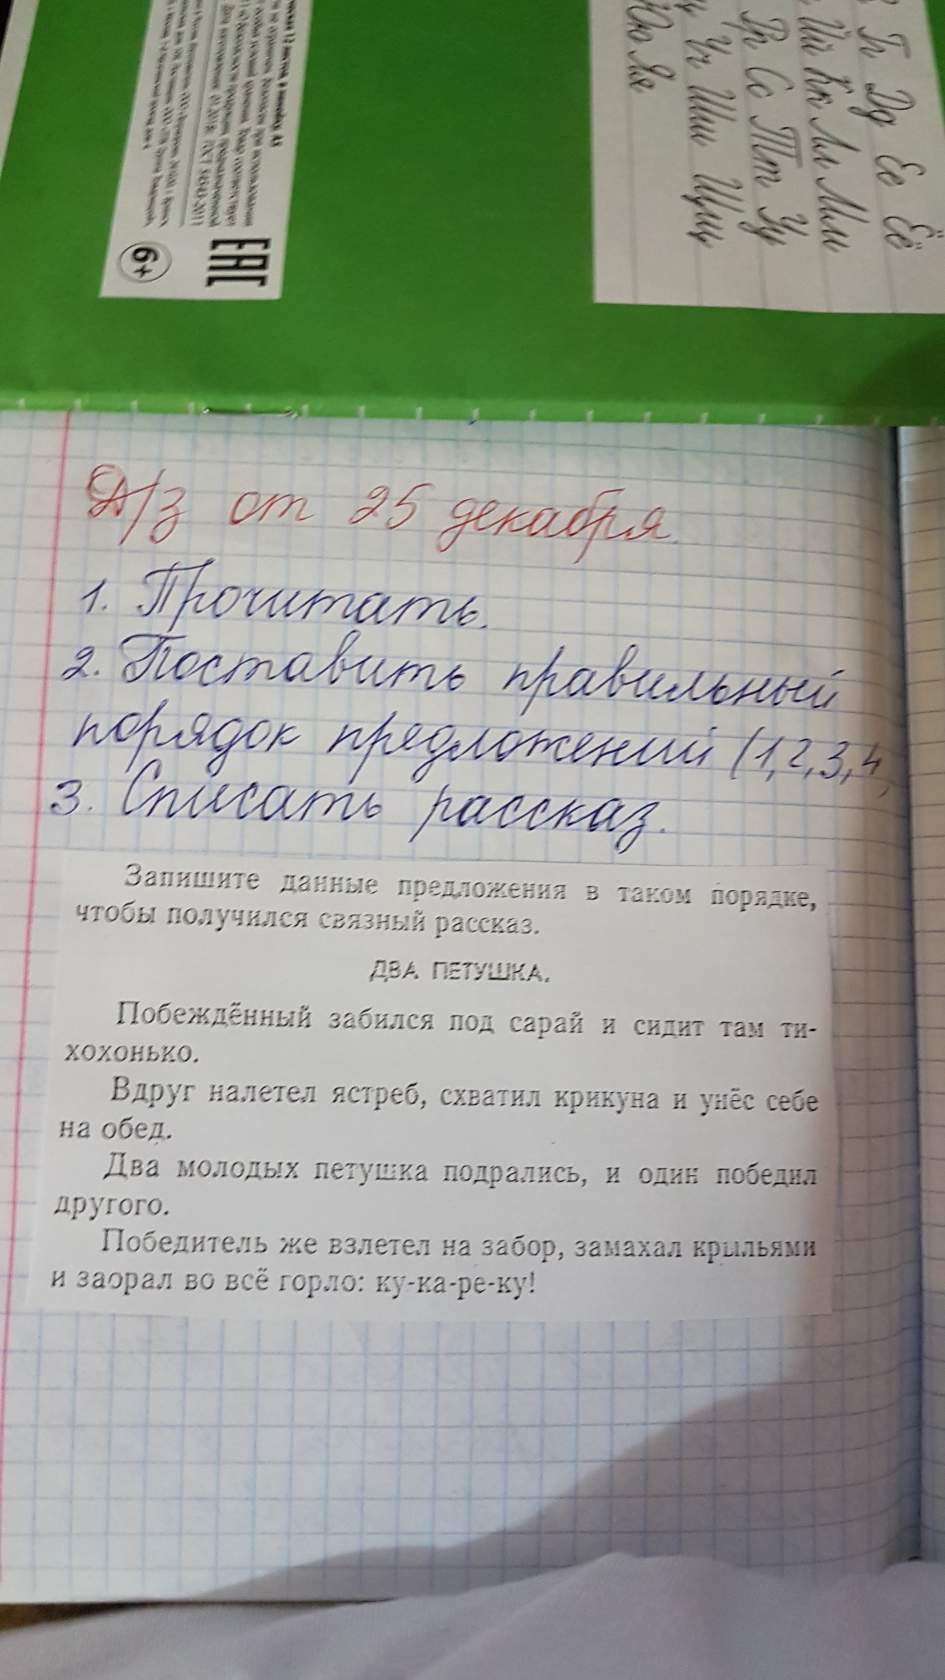 ГОСТ 54543-2011
ЕАС
6+
Дд Ее Ёё
Йй Кк Лл Мм
Рр Сс Тт Уу
Чч Шш Щщ
Юю Яя
Д/з от 25 декабря.
1. Прочитать.
2. Поставить правильный
порядок предложений (1,2,3,4
3. Списать рассказ.
Запишите данные предложения в таком порядке,
чтобы получился связный рассказ.
ДВА ПЕТУШКА.
Побеждённый забился под сарай и сидит там ти-
хохонько.
Вдруг налетел ястреб, схватил крикуна и унёс себе
на обед.
Два молодых петушка подрались, и один победил
другого.
Победитель же взлетел на забор, замахал крыльями
и заорал во всё горло: ку-ка-ре-ку!